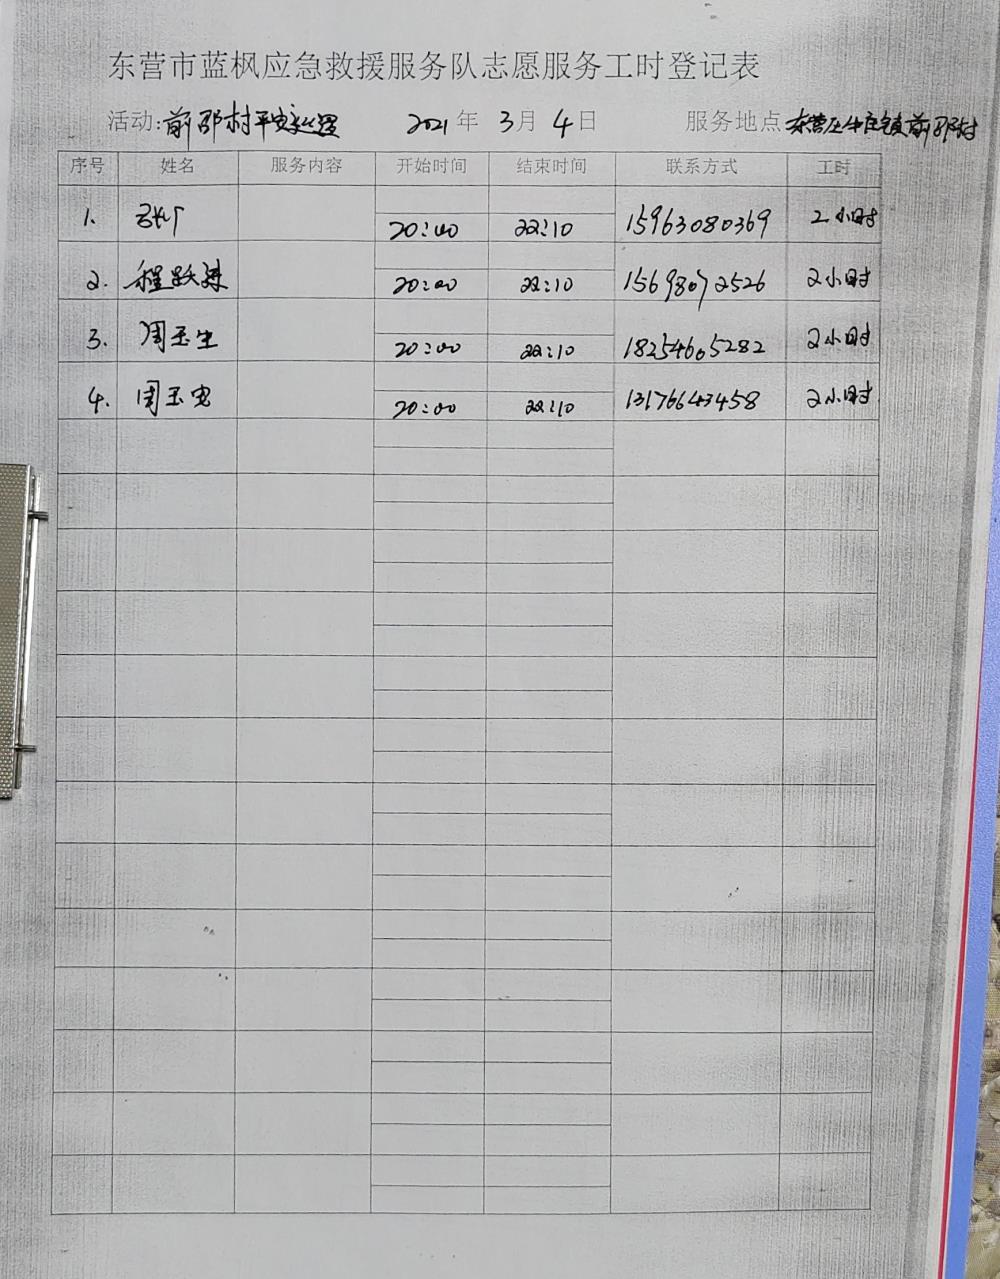 东营市蓝枫应急救援服务队志愿服务工时登记表
活动:前邵村平安巡逻 2021年 3月 4日 服务地点 东营区牛庄镇前邵村
序号 姓名 服务内容 开始时间 结束时间 联系方式 工时
1. 20:00 22:10 15963080369 2小时
2. 程跃进 20:00 22:10 15698072526 2小时
3. 周玉生 20:00 22:10 18254605282 2小时
4. 周玉忠 20:00 22:10 13176643458 2小时